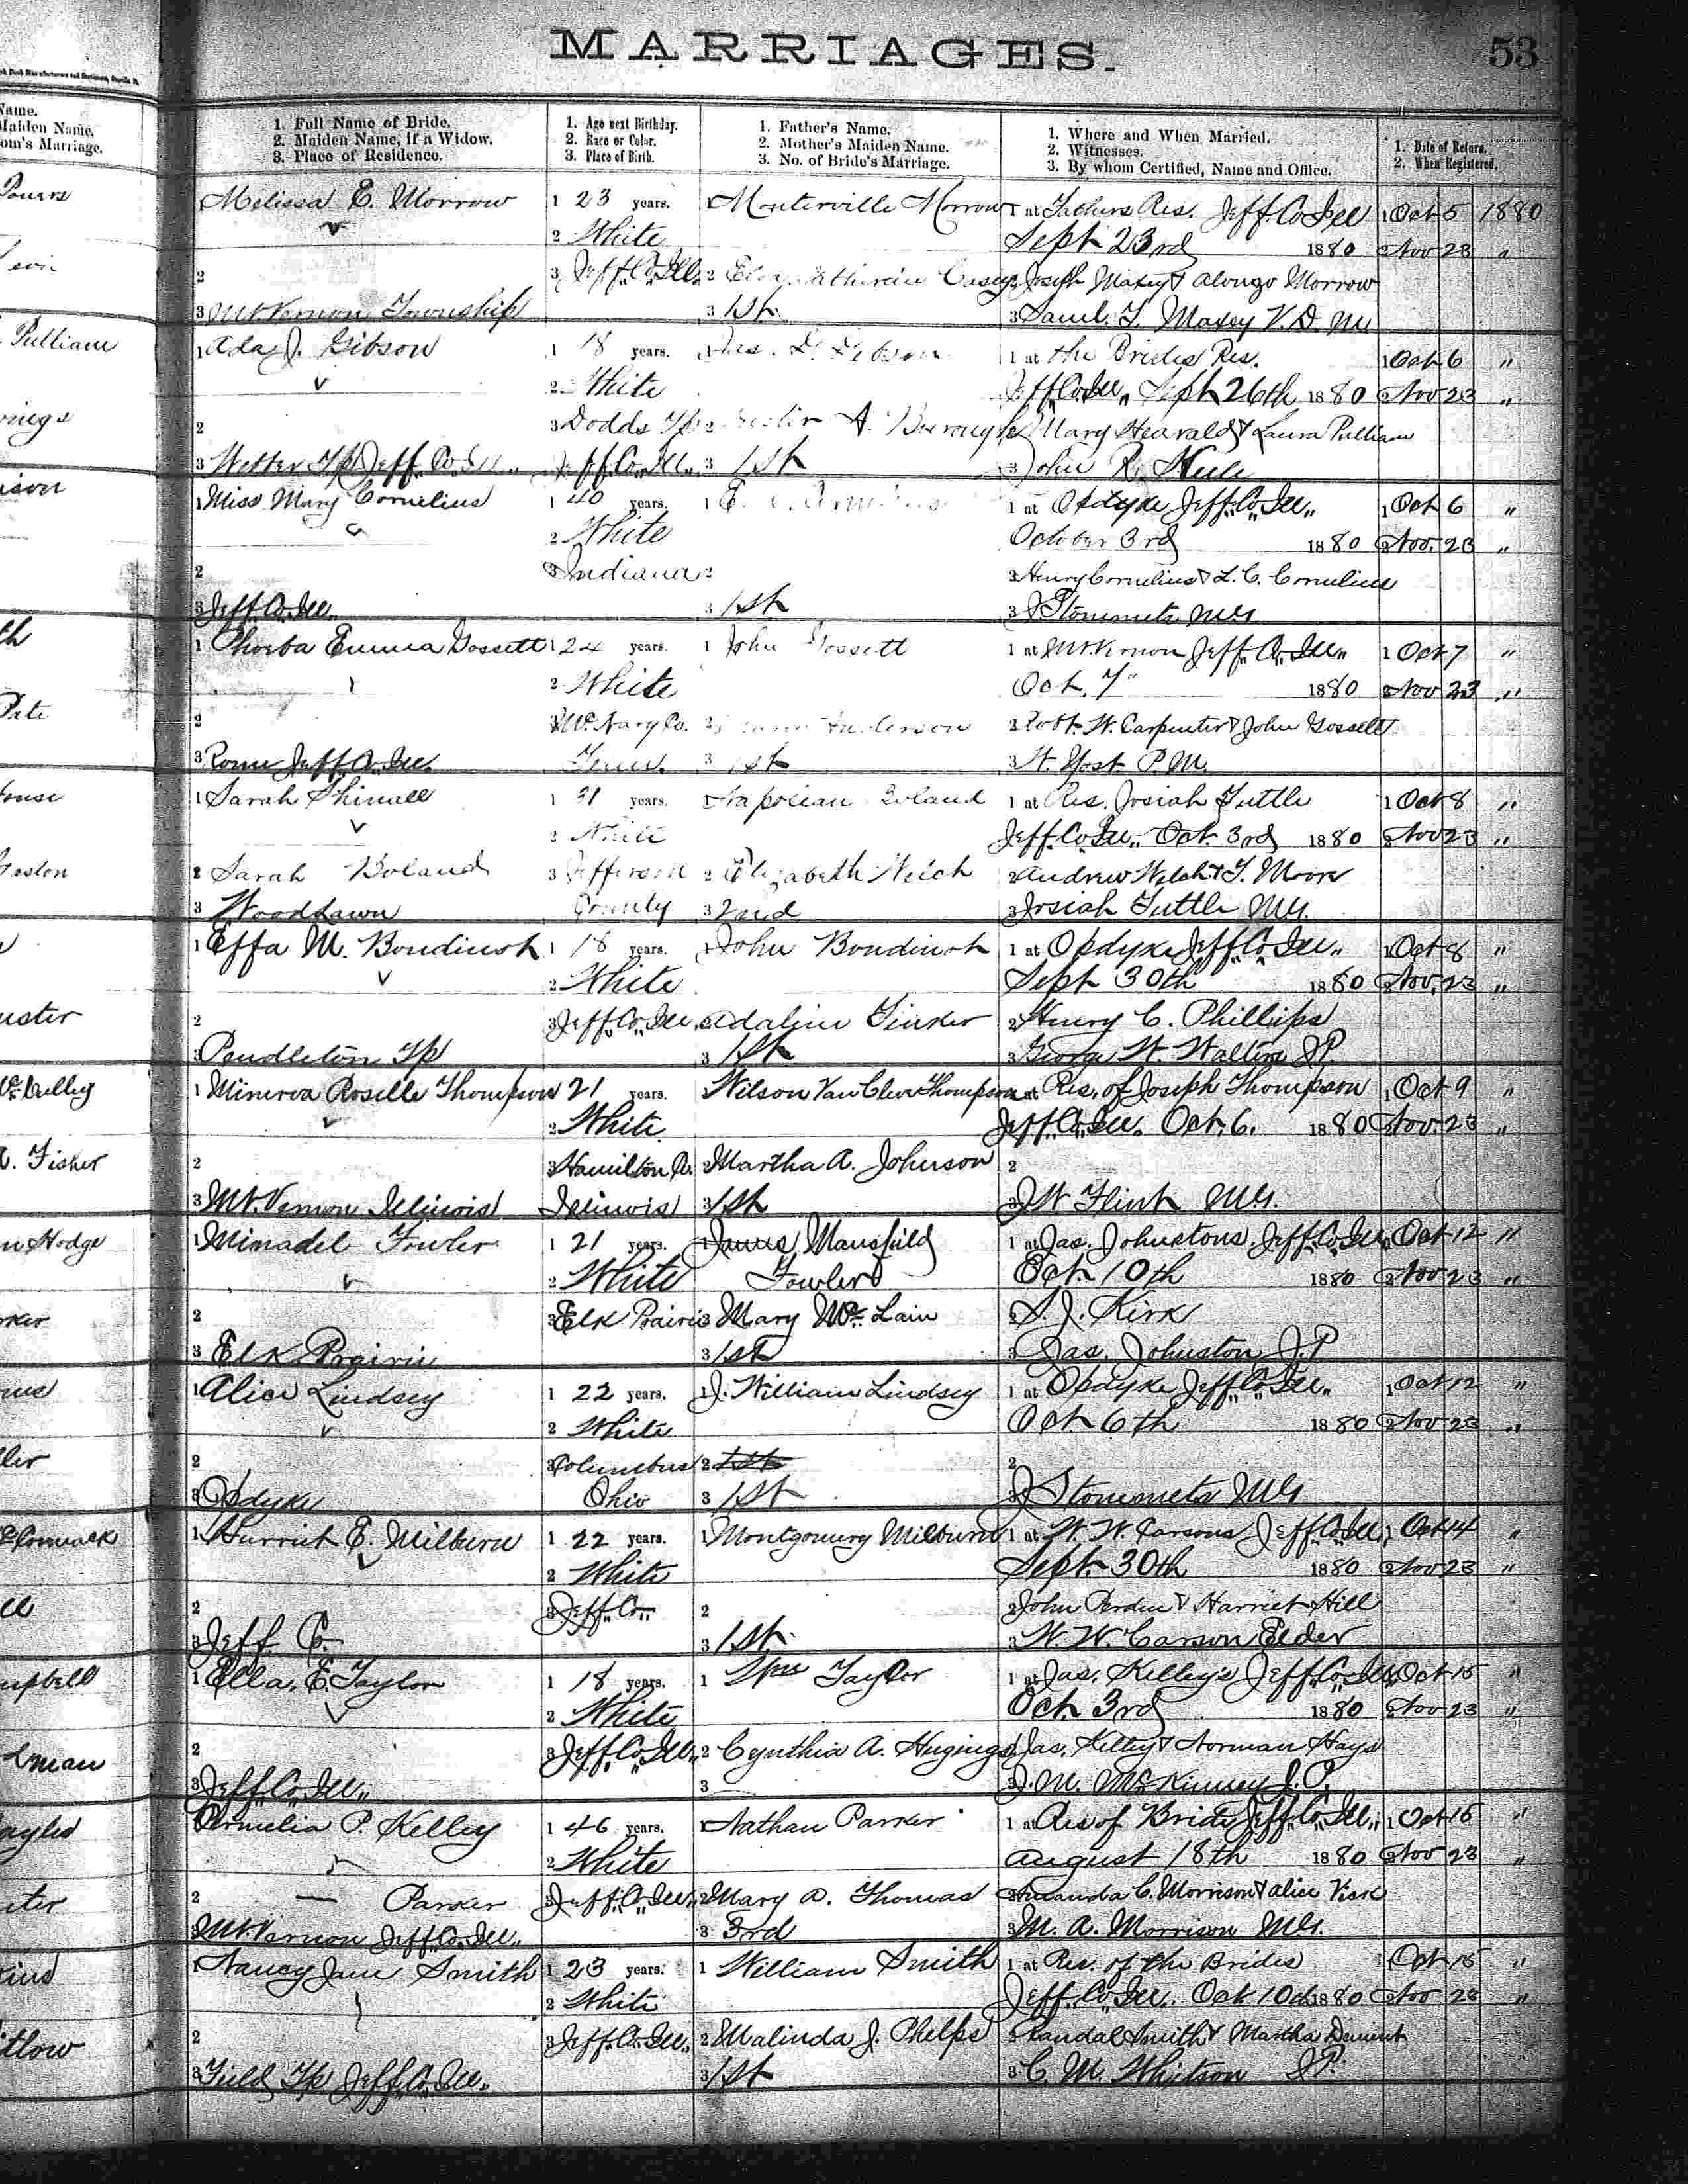 MARRIAGES. 53
Name.
Maiden Name,
om's Marriage.
1. Full Name of Bride.
2. Maiden Name, if a Widow.
3. Place of Residence.
1. Age next Birthday.
2. Race or Color.
3. Place of Birth.
1. Father's Name.
2. Mother's Maiden Name.
3. No. of Bride's Marriage.
1. Where and When Married.
2. Witnesses.
3. By whom Certified, Name and Office.
1. Date of Return.
2. When Registered.
Melissa E. Morrow 1 23 years. 1 Monterville Morrow 1 at Fathers Res. Jeff. Co. Ill 1 Oct 5 1880
2 White Sept 23rd 1880 2 Nov 23 "
2 3 Jeff. Co. Ill. 2 Casey 2 Joseph Maxey & Alonzo Morrow
3 Mt Vernon Township 3 1st 3 Saml. T. Maxey V. D. M.
Pulliam 1 Ada J. Gibson 1 18 years. 1 at the Brides Res. 1 Oct 6 "
2 White Jeff Co Ill. Sept 26th 1880 2 Nov 23 "
2 3 Dodds Tp 2 A. 2 Mary Hearald & Laura Pulliam
3 Tp Jeff. Co. Ill. Jeff. Co. Ill. 3 1st 3 John R.
1 Miss Mary Cornelius 1 40 years. 1 1 at Opdyke Jeff. Co. Ill. 1 Oct 6 "
2 White October 3rd 1880 2 Nov. 23 "
2 3 Indiana 2 2 Henry Cornelius & L. C. Cornelius
3 Jeff. Co. Ill. 3 1st 3 J Stonemets MG
1 Phoeba Emma Gossett 1 24 years. 1 John Gossett 1 at Mt Vernon Jeff. Co. Ill. 1 Oct 7 "
2 White Oct. 7" 1880 2 Nov 23 "
Pate 2 3 Mc Nary Co. 2 2 Robt. W. Carpenter & John Gossett
3 Rome Jeff. Co. Ill. Tenn. 3 1st 3 W. Yost P. M.
1 Sarah Shinall 1 31 years. 1 Napolean Boland 1 at Res. Josiah Tuttle 1 Oct 8 "
2 White Jeff. Co. Ill. Oct. 3rd 1880 2 Nov 23 "
2 Sarah Boland 3 Jefferson 2 Elizabeth Welch 2 Andrew Welch & T. Moore
3 Woodlawn County 3 2nd 3 Josiah Tuttle MG.
1 Effa M. Boudinot 1 18 years. 1 John Boudinot 1 at Opdyke Jeff. Co. Ill. 1 Oct 8 "
2 White Sept 30th 1880 2 Nov. 23 "
2 3 Jeff. Co. Ill. 2 Adaline Tinker 2 Henry C. Phillips
3 Pendleton Tp 3 1st 3 George W. Walters J.P.
1 Minerva Roselle Thompson 1 21 years. 1 Wilson Van Cleve Thompson 1 at Res. of Joseph Thompson 1 Oct 9 "
2 White Jeff. Co. Ill. Oct. 6. 1880 2 Nov. 23 "
Fisher 2 3 Hamilton Co. 2 Martha A. Johnson 2
3 Mt. Vernon Illinois Illinois 3 1st 3 J W Flint MG.
Hodge 1 Minadel Fowler 1 21 years. 1 James Mansfield 1 at Jas. Johnstons. Jeff. Co. Ill. 1 Oct 12 "
2 White Fowler Oct. 10th 1880 2 Nov 23 "
2 3 Elk Prairie 2 Mary Mc Lain 2 S. J. Kirk
3 Elk Prairie 3 1st 3 Jas. Johnston J.P.
1 Alice Lindsey 1 22 years. 1 J. William Lindsey 1 at Opdyke Jeff. Co. Ill. 1 Oct 12 "
2 White Oct. 6th 1880 2 Nov 23 "
2 3 Columbus 2 1st 2
3 Opdyke Ohio 3 1st 3 J Stonemets MG
1 Harriet E. Milburn 1 22 years. 1 Montgomery Milburn 1 at W. W. Carsons Jeff. Co. Ill. 1 Oct 14 "
2 White Sept. 30th 1880 2 Nov 23 "
2 3 Jeff. Co. 2 2 John Perdue & Harriet Hill
3 Jeff Co. 3 1st. 3 W. W. Carson Elder
1 Ella. E. Taylor 1 18 years. 1 Wm Taylor 1 at Jas. Kelley's Jeff. Co. Ill. 1 Oct 15 "
2 White Oct. 3rd 1880 2 Nov 23 "
2 3 Jeff. Co. Ill. 2 Cynthia A. Hugings 2 Jas. Kelley & Norman Hays
3 Jeff. Co. Ill. 3 3 J. M. McKinney J. P.
1 Permelia P. Kelley 1 46 years. 1 Nathan Parker 1 at Res of Bride Jeff. Co. Ill. 1 Oct 15 "
2 White August 18th 1880 2 Nov 23 "
2 — Parker 3 Jeff. Co. Ill. 2 Mary A. Thomas 2 Amanda C. Morrison & Alice Visk
3 Mt. Vernon Jeff. Co. Ill. 3 3rd 3 M. A. Morrison MG.
1 Nancy Jane Smith 1 23 years. 1 William Smith 1 at Res. of the Brides 1 Oct 15 "
2 White Jeff. Co. Ill. Oct 10th 1880 2 Nov 23 "
2 3 Jeff. Co. Ill. 2 Malinda J. Phelps 2 Randal Smith & Martha Dement
3 Field Tp Jeff. Co. Ill. 3 1st 3 C. M. Whitson J.P.